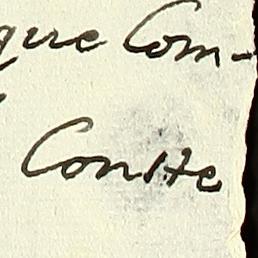 que Com-
Conste